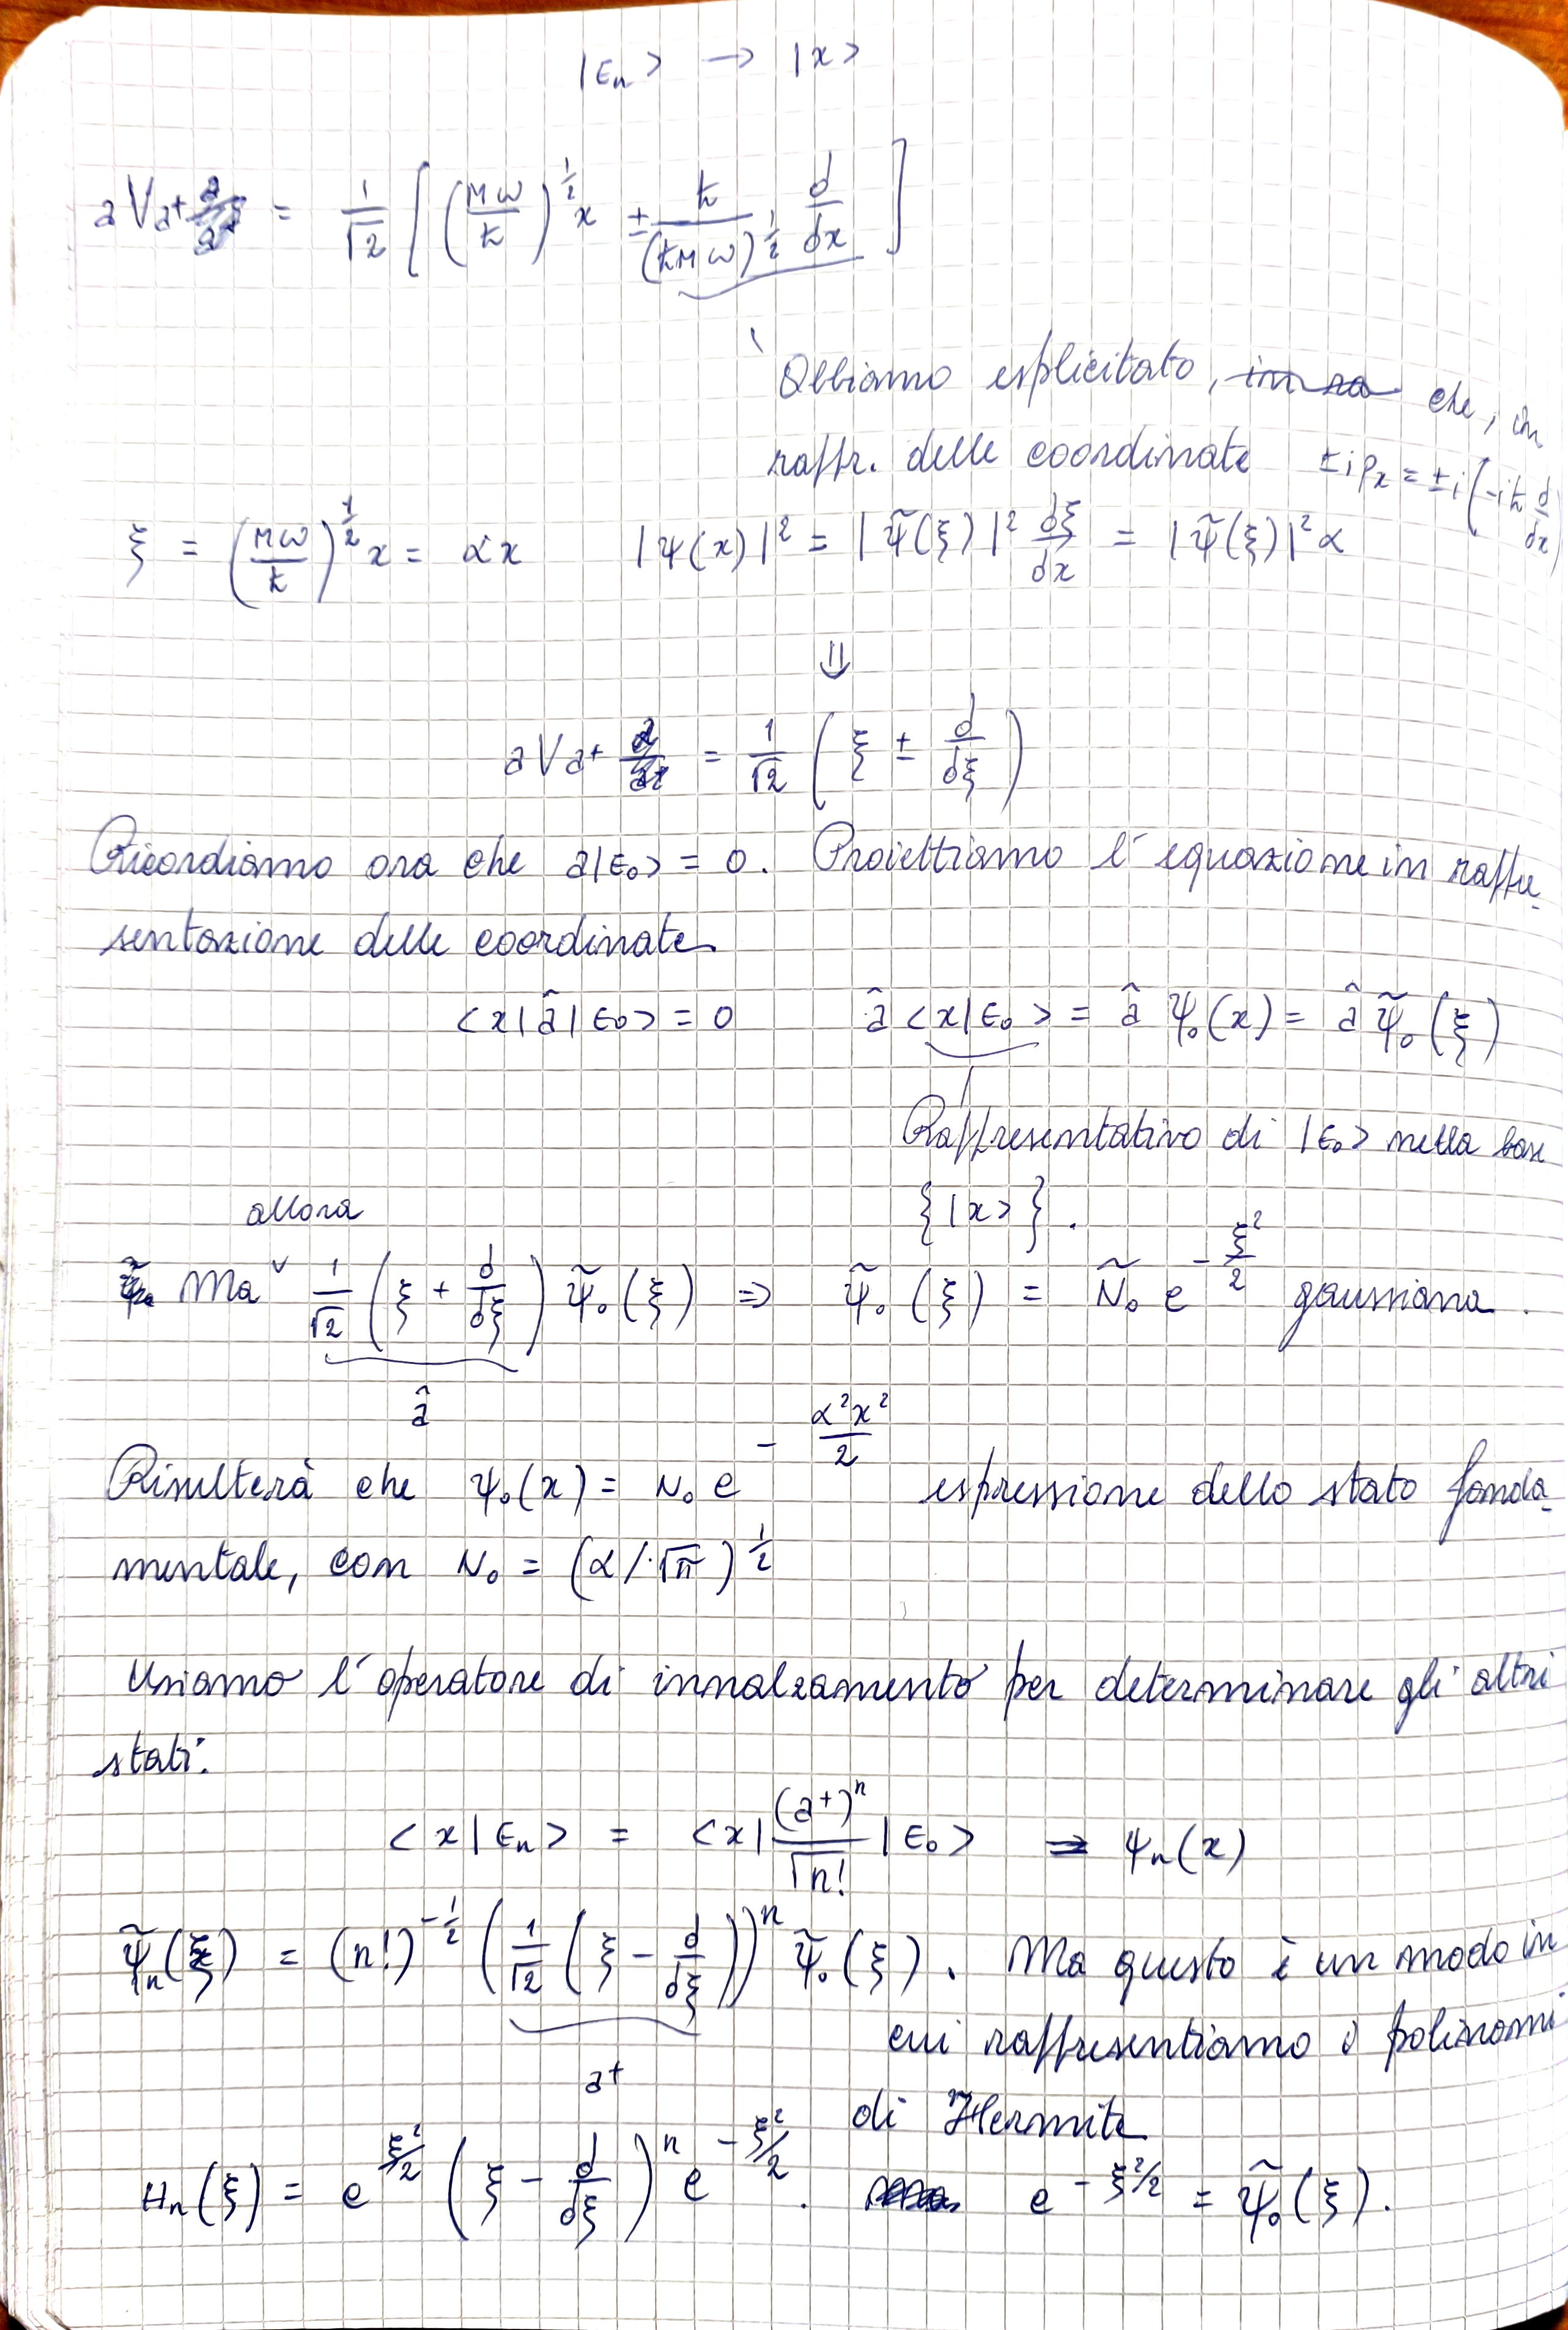 |ϵₙ> → |x>
a V a⁺ = 1/√2 [ (Mω/ħ)^½ x ± ħ/(ħMω)^½ d/dx ]
Abbiamo esplicitato, che, in
rappr. delle coordinate ± i pₓ = ± i (-iħ d/dx)
ξ = (Mω/ħ)^½ x = αx |ψ(x)|² = |ψ̃(ξ)|² dξ/dx = |ψ̃(ξ)|² α
⇓
a V a⁺ = 1/√2 ( ξ ± d/dξ )
Ricordiamo ora che a|ϵ₀> = 0. Proiettiamo l'equazione in rappre-
sentazione delle coordinate
<x|â|ϵ₀> = 0 â <x|ϵ₀> = â ψ₀(x) = â ψ̃₀(ξ)
Rappresentativo di |ϵ₀> nella base
{|x>}.
allora
Ma 1/√2 ( ξ + d/dξ ) ψ̃₀(ξ) ⇒ ψ̃₀(ξ) = Ñ₀ e^(-ξ²/2) gaussiana.
â
Risulterà che ψ₀(x) = N₀ e^(-α²x²/2) espressione dello stato fonda-
mentale, con N₀ = (α/√π)^½
Usiamo l'operatore di innalzamento per determinare gli altri
stati:
<x|ϵₙ> = <x| (a⁺)ⁿ/√n! |ϵ₀> = ψₙ(x)
ψ̃ₙ(ξ) = (n!)^(-½) ( 1/√2 ( ξ - d/dξ ))ⁿ ψ̃₀(ξ). Ma questo è un modo in
cui rappresentiamo i polinomi
a⁺
di Hermite
Hₙ(ξ) = e^(ξ²/2) ( ξ - d/dξ )ⁿ e^(-ξ²/2). e^(-ξ²/2) = ψ̃₀(ξ).